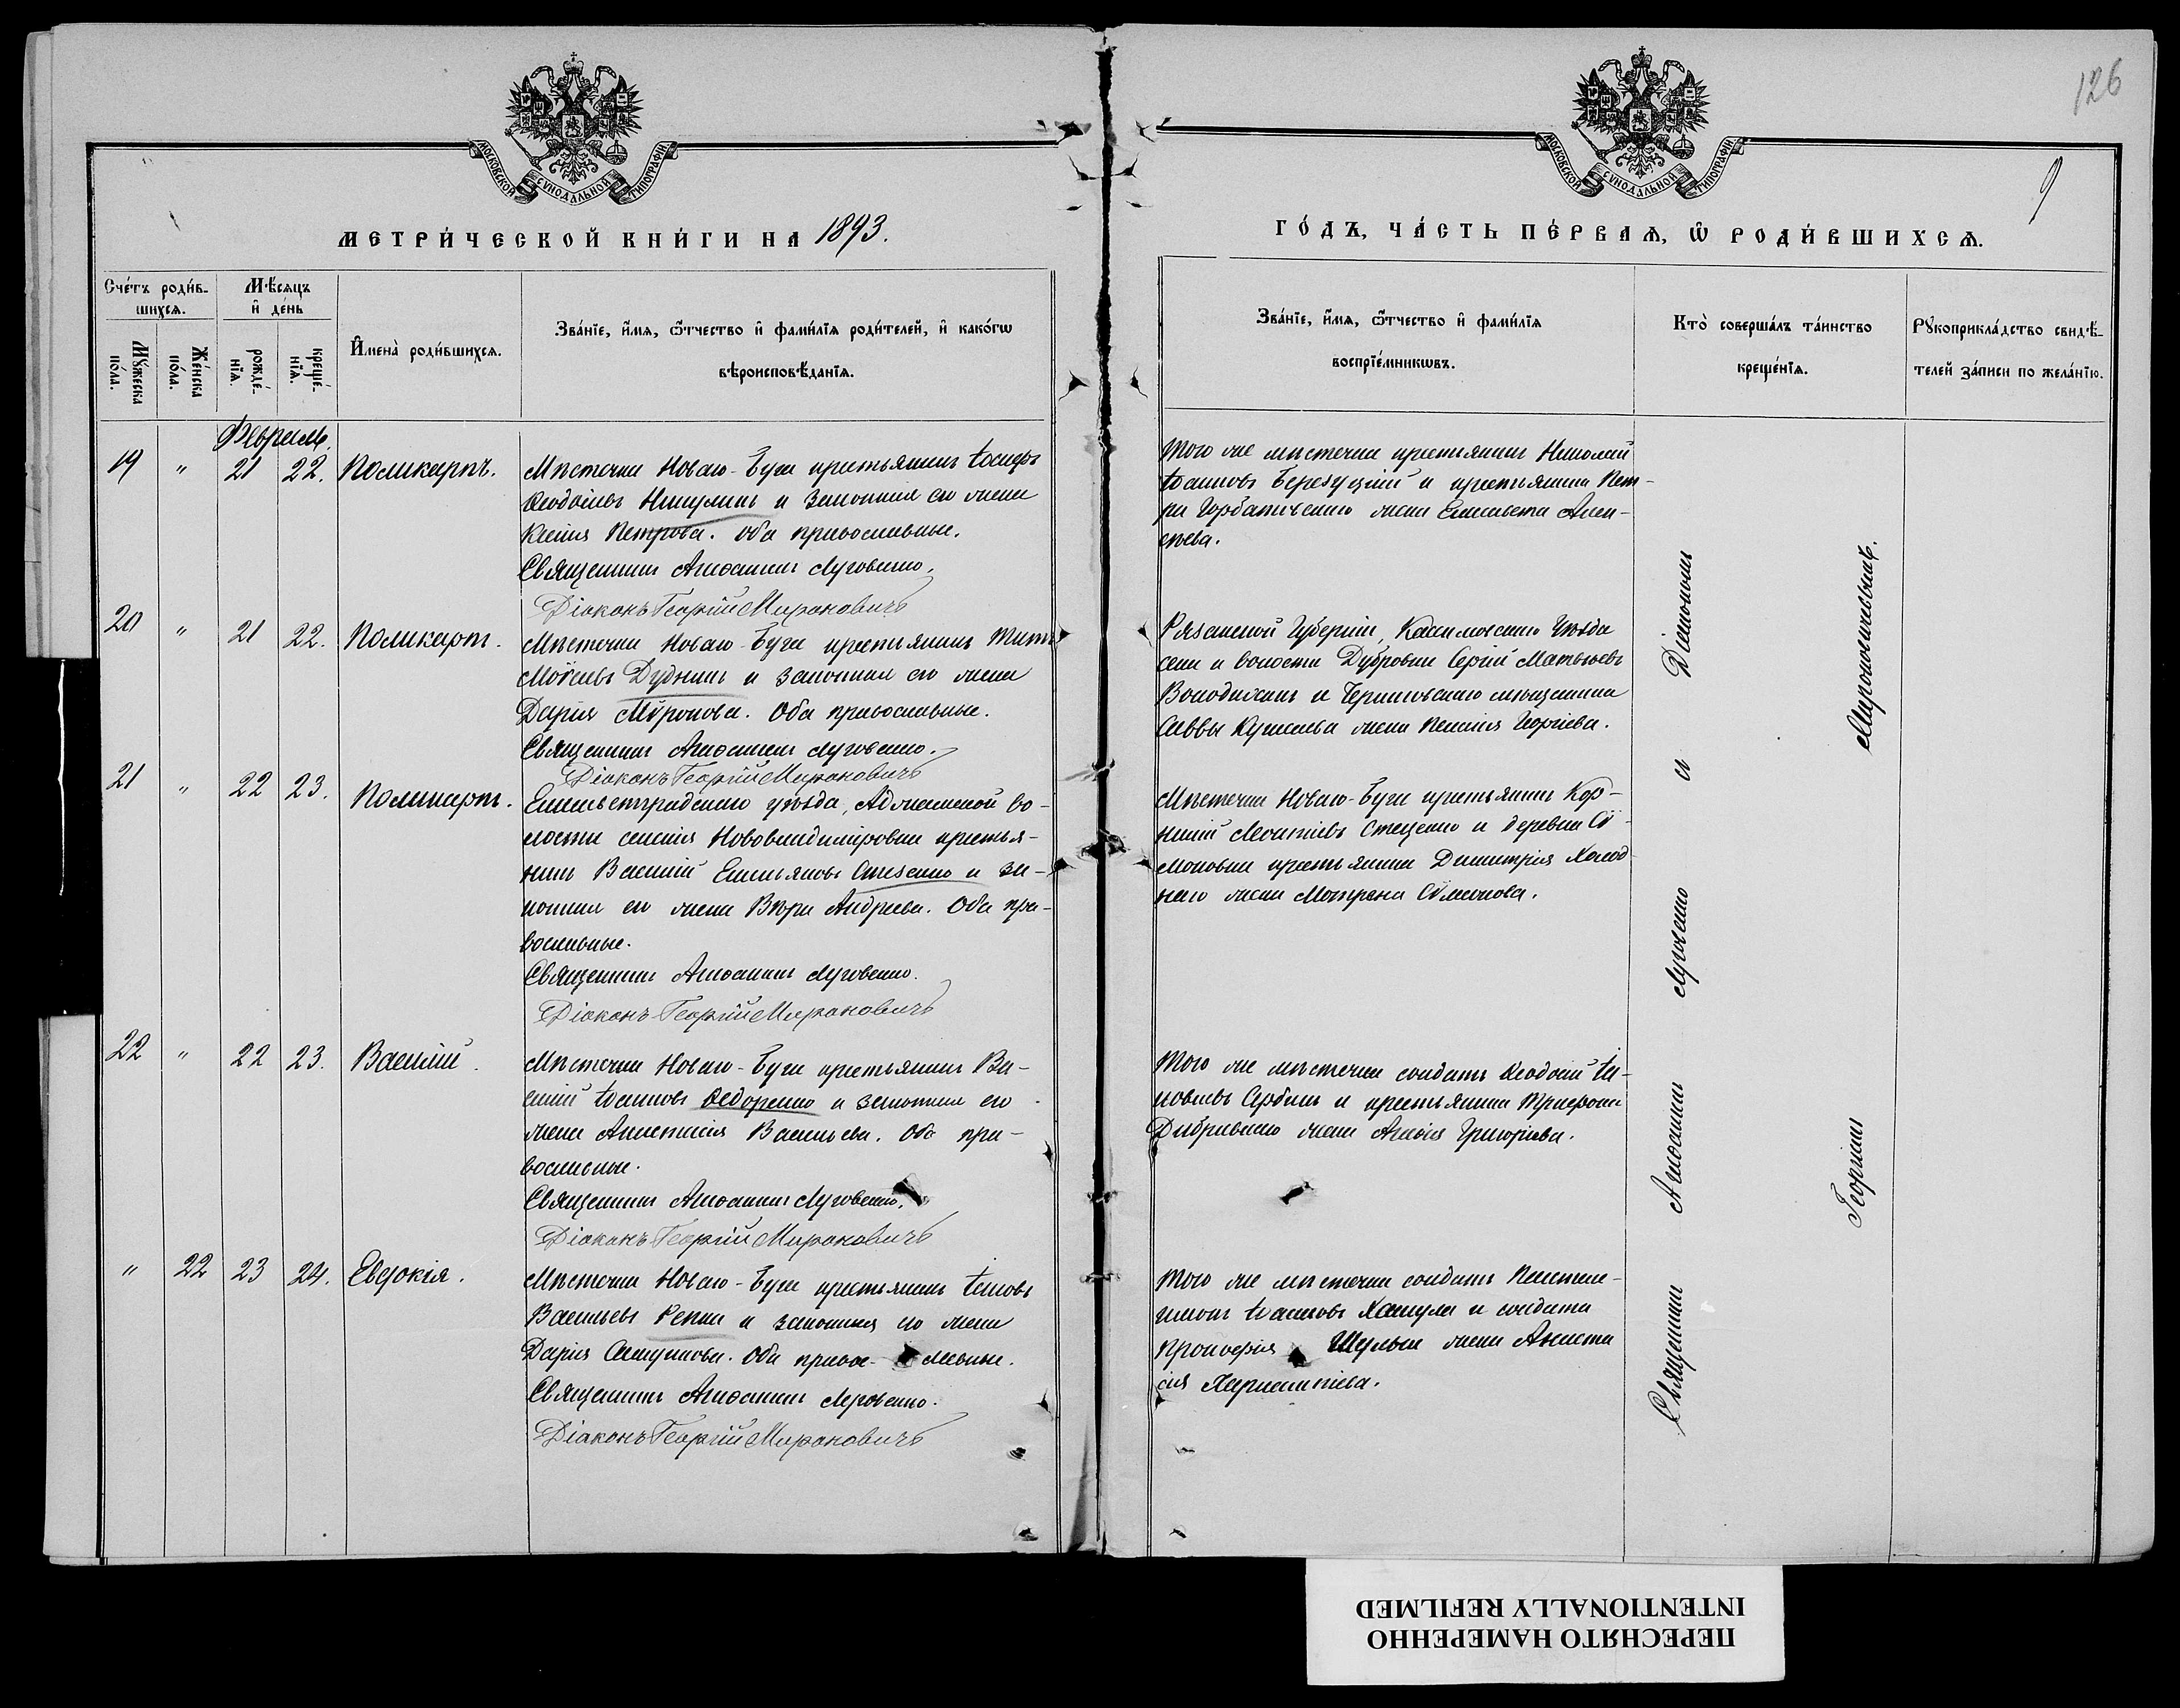 126
9
МОСКОВСКОЙ СѴНОДАЛЬНОЙ ТИПОГРАФІИ
МОСКОВСКОЙ СѴНОДАЛЬНОЙ ТИПОГРАФІИ
МЕТРИ́ЧЕСКОЙ КНИ́ГИ НА 1893.
ГО́ДЪ, ЧА́СТЬ ПЕ́РВАѦ, Ѡ҆ РОДИ́ВШИХСѦ.
Сче́тъ роди́в-
шихсѧ.
Мѣ́сѧцъ
и҆ де́нь
Мꙋ́жеска
по́ла.
Же́нска
по́ла.
рожде́-
нїѧ.
креще́-
нїѧ.
И҆мена̀ роди́вшихсѧ.
Зва́нїе, и҆́мѧ, ѻ҆́тчество и҆ фами́лїѧ роди́телей, и҆ како́гѡ
вѣроисповѣ́данїѧ.
Зва́нїе, и҆́мѧ, ѻ҆́тчество и҆ фами́лїѧ
воспрїе́мникѡвъ.
Кто̀ соверша́лъ та́инство
креще́нїѧ.
Рꙋкоприкла́дство свидѣ́-
телей за́писи по жела́нїю.
Февраль.
19 " 21 22. Поликарпъ.
Мѣстечка Новаго-Буга крестьянинъ Іосифъ
Ѳеодосіевъ Никулинъ и законная его жена
Ксенія Петрова. Оба православные.
Священникъ Луговенко.
Діаконъ Георгій Мироновичъ
Того же мѣстечка крестьянинъ Николай
Іоанновъ и крестьянина Пет-
ра жена Елисавета Алек-
сѣева.
20 " 21 22. Поликарпъ.
Мѣстечка Новаго-Буга крестьянинъ Титъ
Моѵсеевъ Дудникъ и законная его жена
Дарія Мѵронова. Оба православные.
Священникъ Луговенко.
Діаконъ Георгій Мироновичъ
Рязанской Губерніи, Касимовскаго Уѣзда
села и волости Дубровки Сергій Матвѣевъ
Володихинъ и Черниговскаго мѣщанина
Саввы жена Пелагія Георгіева.
21 " 22 23. Поликарпъ.
Елисаветградскаго уѣзда, во-
лости селенія Нововладиміровки крестья-
нинъ Василій Емельяновъ и за-
конная его жена Вѣра Андреева. Оба пра-
вославные.
Священникъ Луговенко.
Діаконъ Георгій Мироновичъ
Мѣстечка Новаго-Буга крестьянинъ Кор-
нилій Леонтіевъ Стеценко и деревни Сѵ-
моновки крестьянина Димитрія Холод-
наго жена Матрона Сѵмеонова.
22 " 22 23. Василій.
Мѣстечка Новаго-Буга крестьянинъ Ва-
силій Іоанновъ Ѳедоренко и законная его
жена Анастасія Васильева. Оба пра-
вославные.
Священникъ Луговенко.
Діаконъ Георгій Мироновичъ
Того же мѣстечка солдатъ Ѳеодосій Іа-
ковлевъ Сербинъ и крестьянина Трифона
жена Агаѳія Григоріева.
" 22 23 24. Евдокія.
Мѣстечка Новаго-Буга крестьянинъ Іаковъ
Васильевъ Репка и законная его жена
Дарія Самуилова. Оба право- славные.
Священникъ Луговенко.
Діаконъ Георгій Мироновичъ
Того же мѣстечка солдатъ Пантеле-
имонъ Іоанновъ и солдата
Прокофія Шульги жена Анаста
сія Харлампіева.
Священникъ Луговенко и Діакономъ
Георгіемъ Мироновичемъ.
ПЕРЕСНЯТО НАМЕРЕННО
INTENTIONALLY REFILMED